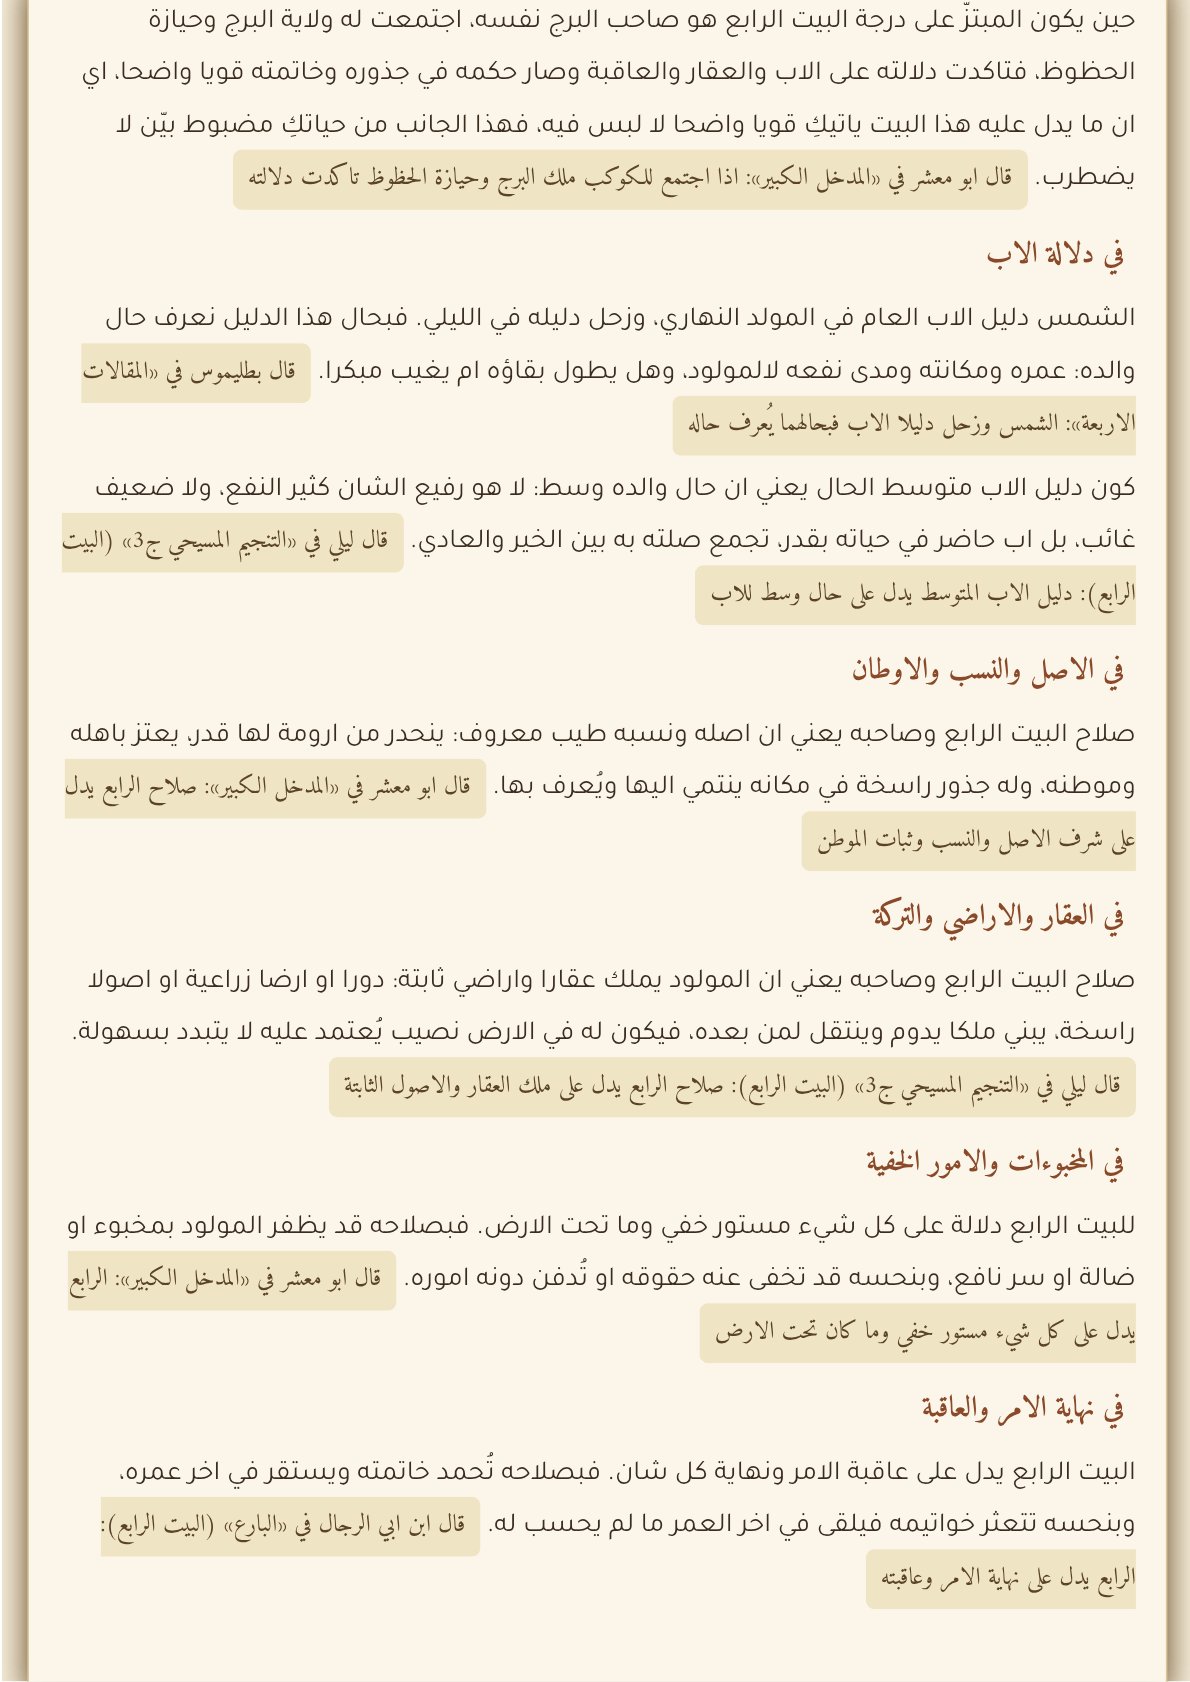 حين يكون المبتزّ على درجة البيت الرابع هو صاحب البرج نفسه، اجتمعت له ولاية البرج وحيازة
الحظوظ، فتاكدت دلالته على الاب والعقار والعاقبة وصار حكمه في جذوره وخاتمته قويا واضحا، اي
ان ما يدل عليه هذا البيت ياتيكِ قويا واضحا لا لبس فيه، فهذا الجانب من حياتكِ مضبوط بيّن لا
يضطرب. قال ابو معشر في «المدخل الكبير»: اذا اجتمع للكوكب ملك البرج وحيازة الحظوظ تاكدت دلالته
في دلالة الاب
الشمس دليل الاب العام في المولد النهاري، وزحل دليله في الليلي. فبحال هذا الدليل نعرف حال
والده: عمره ومكانته ومدى نفعه لالمولود، وهل يطول بقاؤه ام يغيب مبكرا. قال بطليموس في «المقالات
الاربعة»: الشمس وزحل دليلا الاب فبحالهما يُعرف حاله
كون دليل الاب متوسط الحال يعني ان حال والده وسط: لا هو رفيع الشان كثير النفع، ولا ضعيف
غائب، بل اب حاضر في حياته بقدر، تجمع صلته به بين الخير والعادي. قال ليلي في «التنجيم المسيحي ج3» (البيت
الرابع): دليل الاب المتوسط يدل على حال وسط للاب
في الاصل والنسب والاوطان
صلاح البيت الرابع وصاحبه يعني ان اصله ونسبه طيب معروف: ينحدر من ارومة لها قدر، يعتز باهله
وموطنه، وله جذور راسخة في مكانه ينتمي اليها ويُعرف بها. قال ابو معشر في «المدخل الكبير»: صلاح الرابع يدل
على شرف الاصل والنسب وثبات الموطن
في العقار والاراضي والتركة
صلاح البيت الرابع وصاحبه يعني ان المولود يملك عقارا واراضي ثابتة: دورا او ارضا زراعية او اصولا
راسخة، يبني ملكا يدوم وينتقل لمن بعده، فيكون له في الارض نصيب يُعتمد عليه لا يتبدد بسهولة.
قال ليلي في «التنجيم المسيحي ج3» (البيت الرابع): صلاح الرابع يدل على ملك العقار والاصول الثابتة
في المخبوءات والامور الخفية
للبيت الرابع دلالة على كل شيء مستور خفي وما تحت الارض. فبصلاحه قد يظفر المولود بمخبوء او
ضالة او سر نافع، وبنحسه قد تخفى عنه حقوقه او تُدفن دونه اموره. قال ابو معشر في «المدخل الكبير»: الرابع
يدل على كل شيء مستور خفي وما كان تحت الارض
في نهاية الامر والعاقبة
البيت الرابع يدل على عاقبة الامر ونهاية كل شان. فبصلاحه تُحمد خاتمته ويستقر في اخر عمره،
وبنحسه تتعثر خواتيمه فيلقى في اخر العمر ما لم يحسب له. قال ابن ابي الرجال في «البارع» (البيت الرابع):
الرابع يدل على نهاية الامر وعاقبته